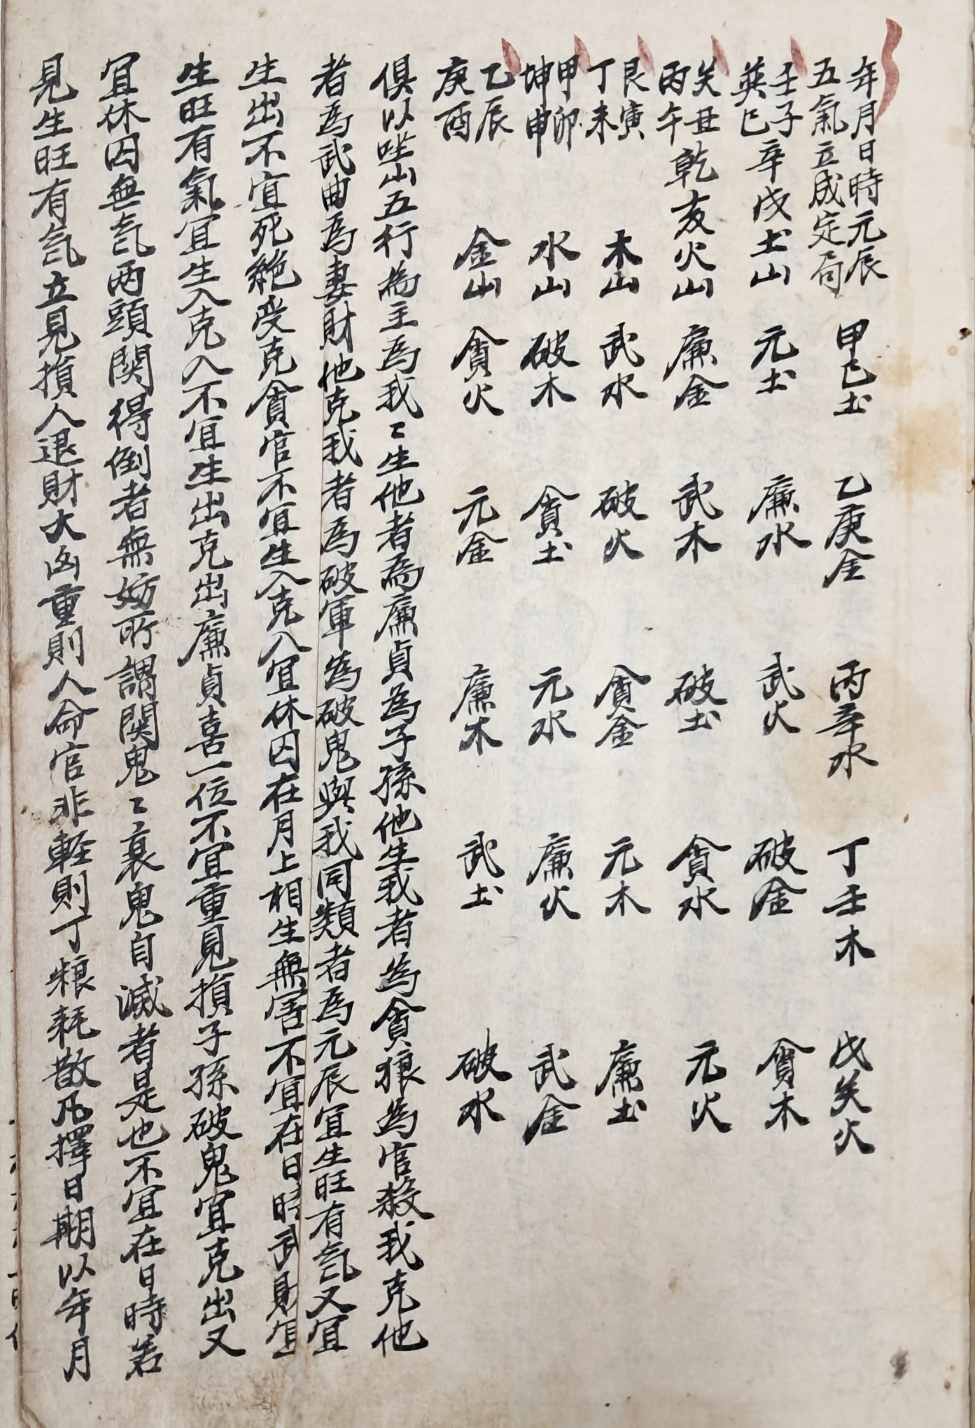 年月日時元辰
五氣立成定局 甲己土 乙庚金 丙辛水 丁壬木 戊癸火
壬子
英巳辛戊土山 元土 廉水 武火 破金 貪木
癸丑
丙午乾亥火山 廉金 武木 破土 貪水 元火
艮寅
丁未 木山 武水 破火 貪金 元木 廉土
甲卯
坤申 水山 破木 貪土 元水 廉火 武金
乙辰
庚酉 金山 貪火 元金 廉木 武土 破水
俱以坐山五行為主為我〻生他者為廉貞為子孫他生我者為貪狼為官殺我克他
者為武曲為妻財他克我者為破軍為破鬼與我同類者為元辰宜生旺有氣又宜
生出不宜死絶受克貪官不宜生入克入宜休囚在月上相生無害不宜在日時武財宜
生旺有氣宜生入克入不宜生出克出廉貞喜一位不宜重見損子孫破鬼宜克出又
宜休囚無氣兩頭関得倒者無妨所謂関鬼〻衰鬼自滅者是也不宜在日時若
見生旺有氣立見損人退財大凶重則人命官非輕則丁粮耗散凡擇日期以年月